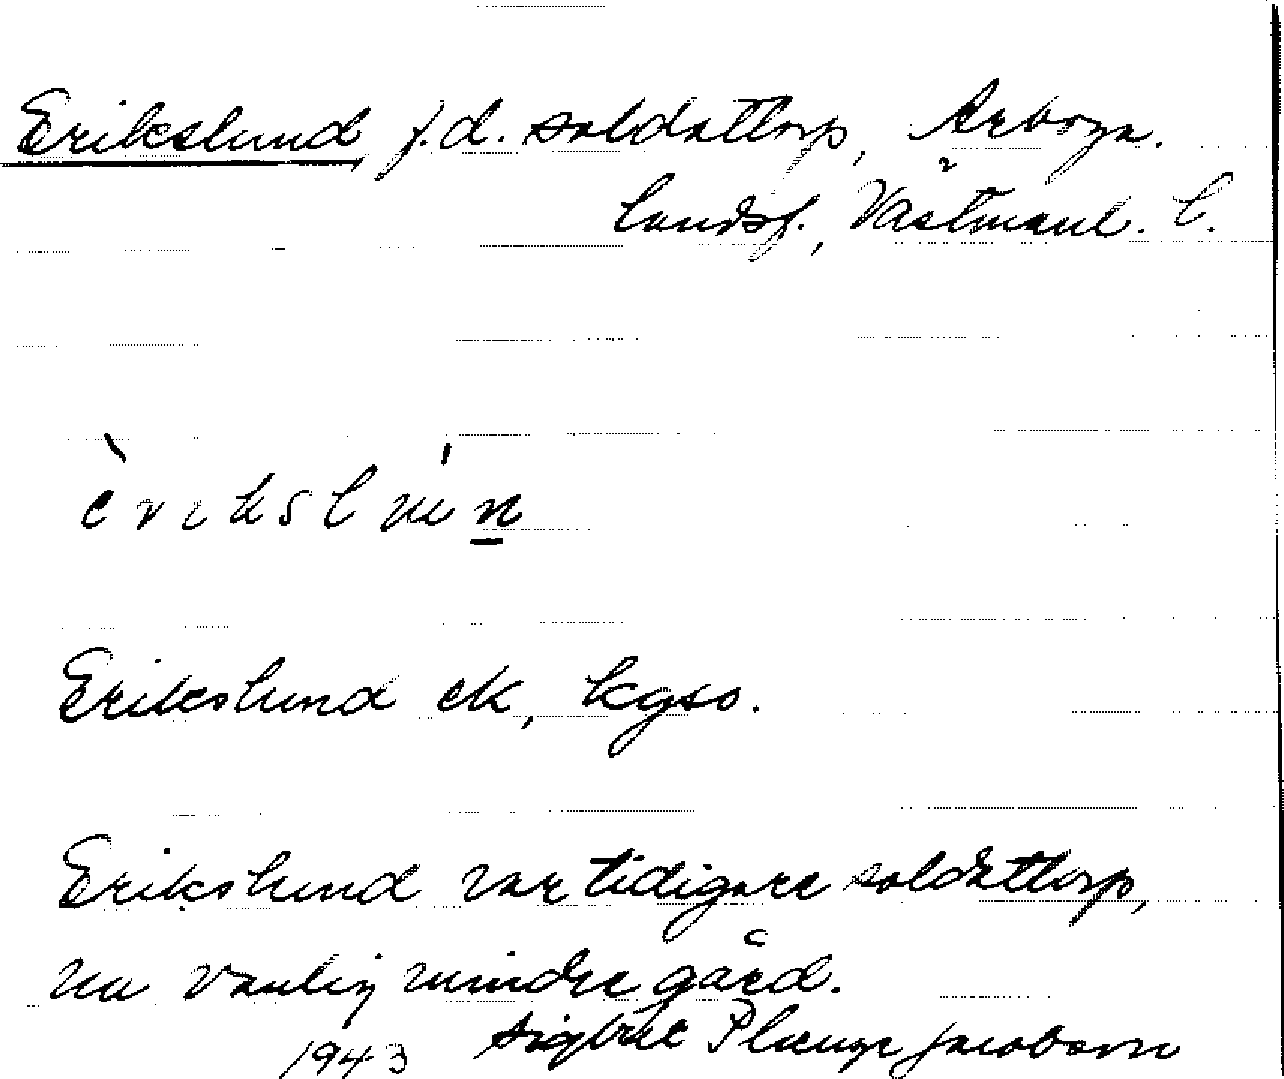 Erikslund, f.d. soldattorp, Arboga.
landsf., Västmanl. l.
Erikslund ek, kgso.
Erikslund var tidigare soldattorp,
nu vanlig mindre gård.
1943 Sigbrit Plænge Jacobson